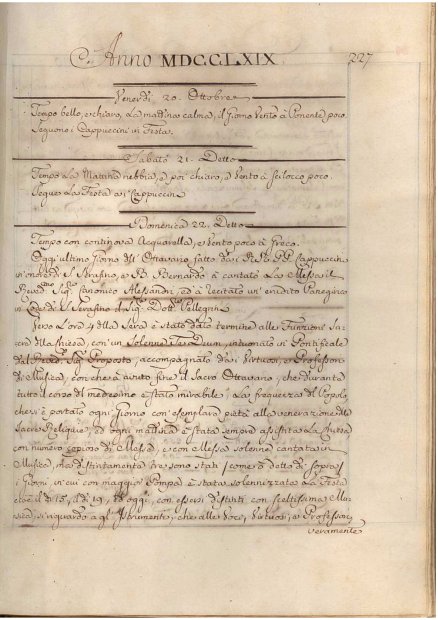 Anno MDCCLXIX 227
Venerdì 20. Ottobre
Tempo bello, e chiaro, la mattina calma, il Giorno Vento à Ponente poco.
Seguono i Cappuccini in Festa.
Sabato 21. Detto
Tempo la Mattina nebbia, e poi chiaro, e Vento à Scilocco poco.
Segue la Festa a i Cappuccini
Domenica 22. Detto
Tempo con continova Acquarella, e Vento poco à Greco.
Oggi ultimo Giorno dell' Ottavario fatto da i PP. Cappuccini
in onore di S. Serafino, e B. Bernardo à cantato la Messa il
Sig. Canonico Alessandri, ed à recitato un' erudito Panegirico
in Lode di S. Serafino il Sig. Dott. Pellegrini
Verso l'ore 4 della Sera è stato dato termine alle Funzioni
Chiesa, con un Solenne Te Deum, intuonato in Pontificale
dal Sig. Proposto, accompagnato da i Virtuosi, e Professori
di Musica, con che à avuto fine il Sacro Ottavario, che durante
tutto il corso del medesimo è stato mirabile, la frequenza del Popolo,
che si è portato ogni Giorno con esemplare pietà alla venerazione delle
Sacre Reliquie, ed ogni mattina è stata sempre assistita la Chiesa
con numero copioso di Messe, e con Messa solenne cantata in
Musica, ma distintamente tre sono stati (come è detto di sopra)
i Giorni, in cui con maggior Pompa è stata solennizzata la Festa
cioè il dì 15, il dì 19, ed oggi, con essersi distinti con sceltissima Mu-
sica, si riguardo a gl' Istrumenti, che alle Voci, Virtuosi, e Professori
veramente